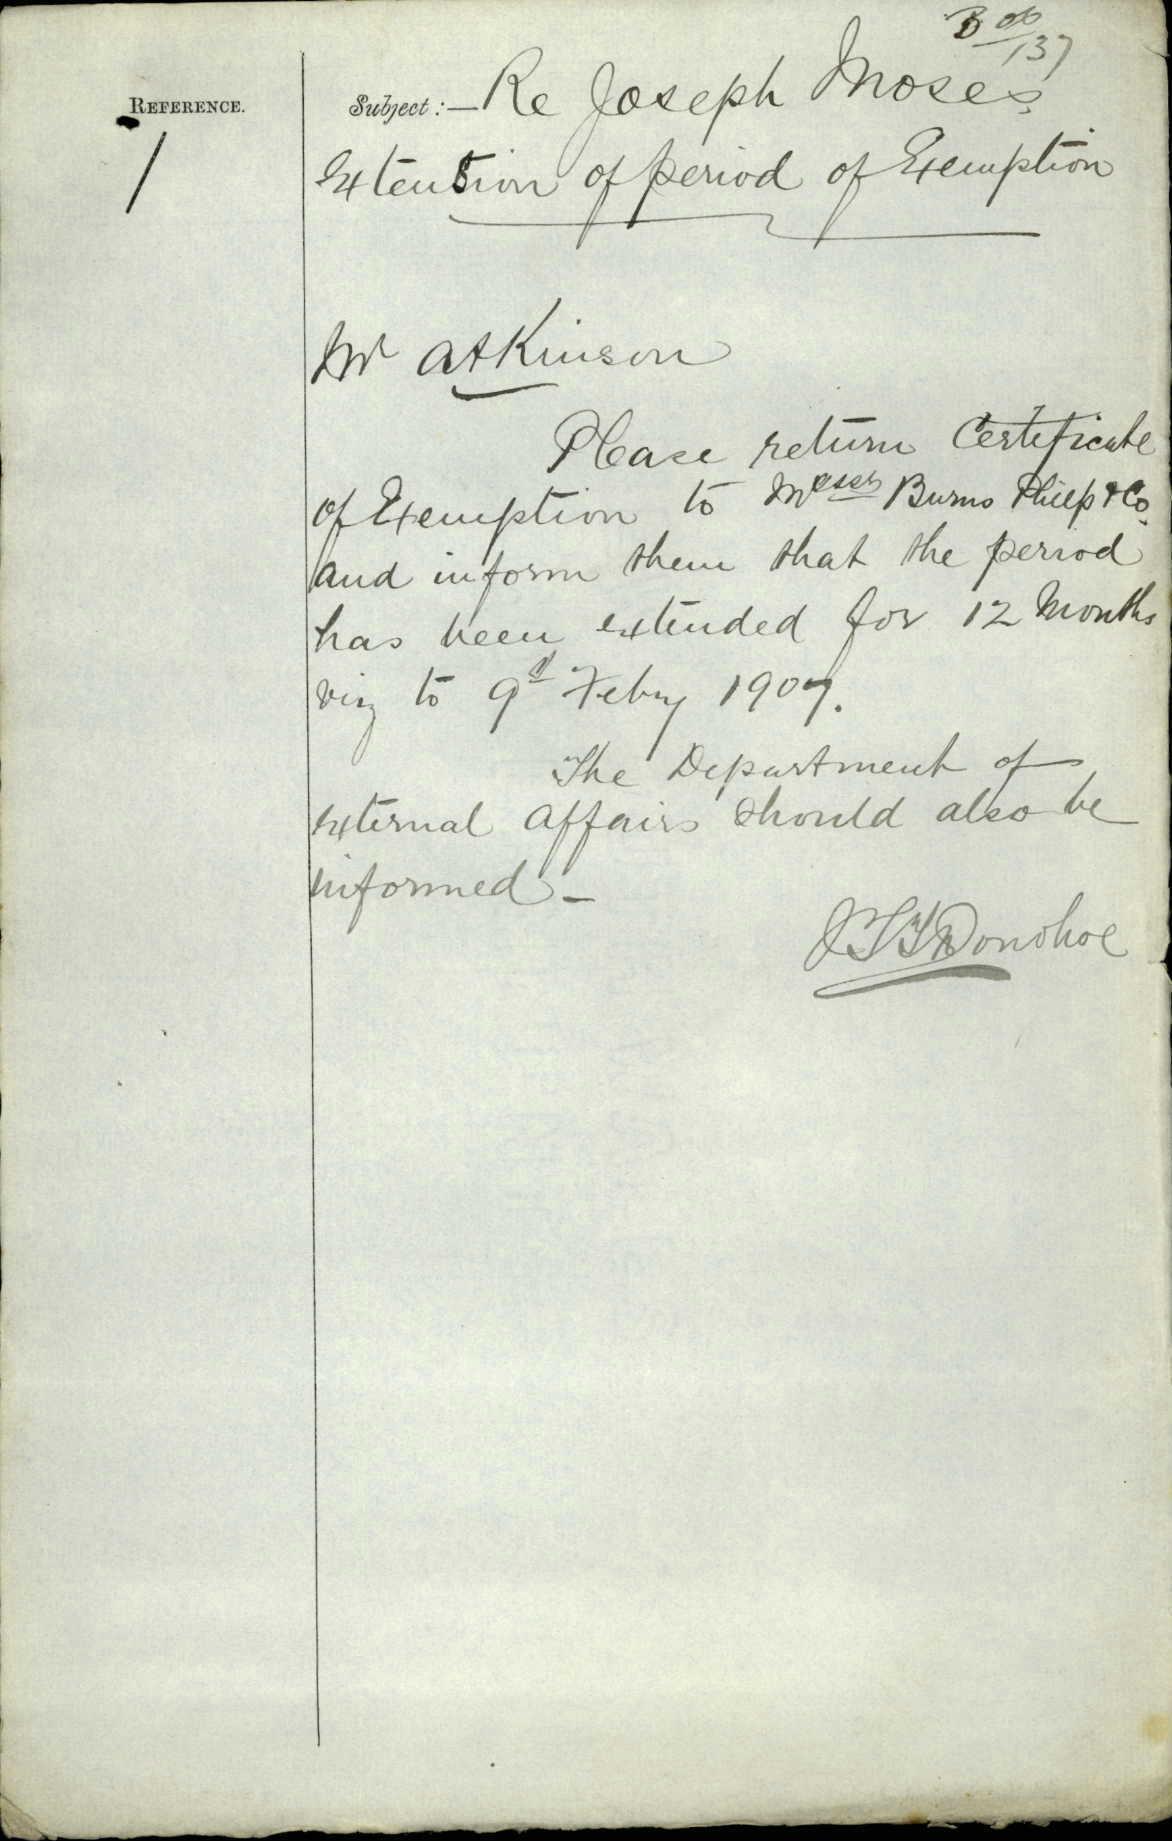 B 06/137
REFERENCE.
Subject:— Re Joseph Moses.
Extension of period of Exemption
1
Mr Atkinson
Please return Certificate
of Exemption to Messrs Burns Philp & Co.
and inform them that the period
has been extended for 12 Months
viz to 9th Febry 1907.
The Department of
External Affairs should also be
informed —
Donohoe